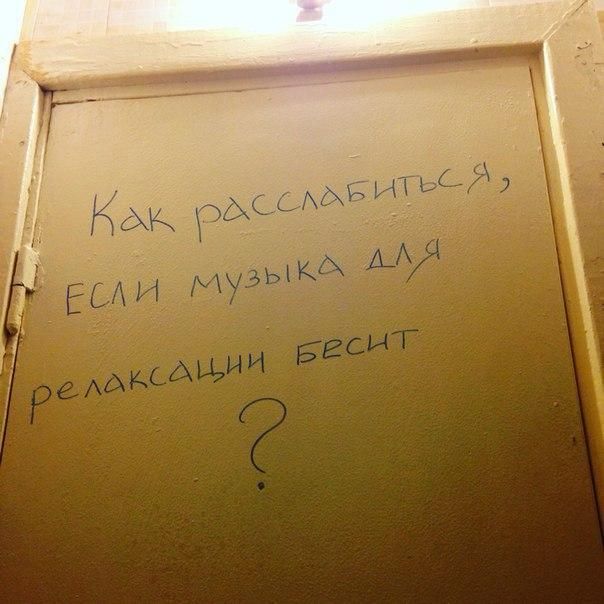 Как расслабиться,
если музыка для
релаксации бесит
?